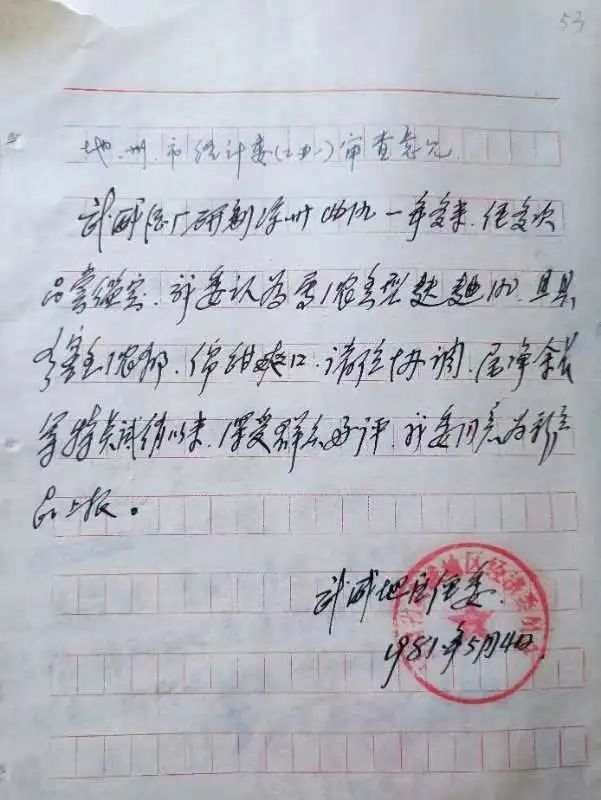 53
地、州、市经计委(二办)审查意见
武威酒厂研制凉州曲酒一年多来,经多次
品尝鉴定,我委认为属浓香型麸曲酒,且具
窖香浓郁,绵甜爽口,诸味协调,尾净余长
等特点试销以来,深受群众好评,我委同意为新产
品上报。
武威地区经委
1981年5月4日
地区经济委员会